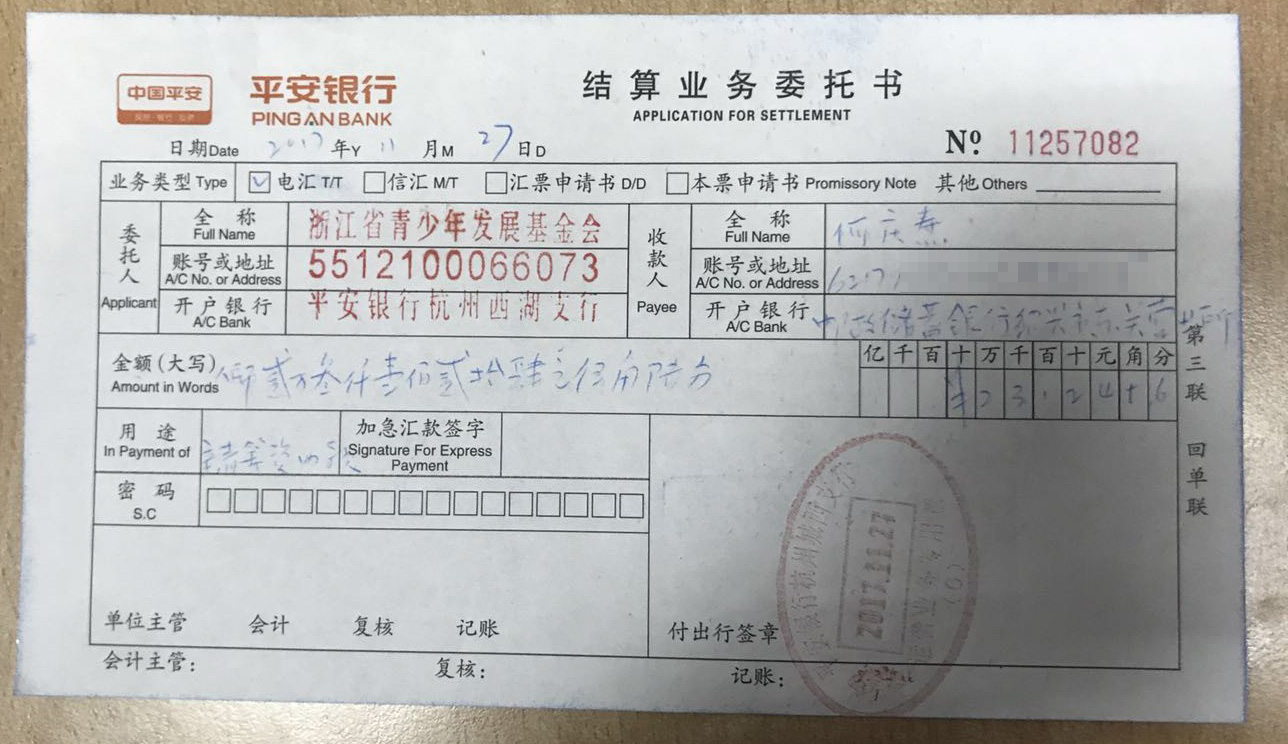 中国平安
保险·银行·投资
平安银行
PING AN BANK
结算业务委托书
APPLICATION FOR SETTLEMENT
日期Date 2017 年Y 11 月M 27 日D
Nº 11257082
业务类型 Type ☑电汇T/T □信汇M/T □汇票申请书D/D □本票申请书 Promissory Note 其他Others
委托人
Applicant
全称
Full Name
浙江省青少年发展基金会
账号或地址
A/C No. or Address
5512100066073
开户银行
A/C Bank
平安银行杭州西湖支行
收款人
Payee
全称
Full Name
账号或地址
A/C No. or Address
6217
开户银行
A/C Bank
金额(大写)
Amount in Words
贰万叁仟壹佰贰拾肆元伍角陆分
亿千百十万千百十元角分
用途
In Payment of
加急汇款签字
Signature For Express
Payment
密码
S.C
单位主管 会计 复核 记账
付出行签章
2017.11.27
会计主管: 复核: 记账:
第三联 回单联